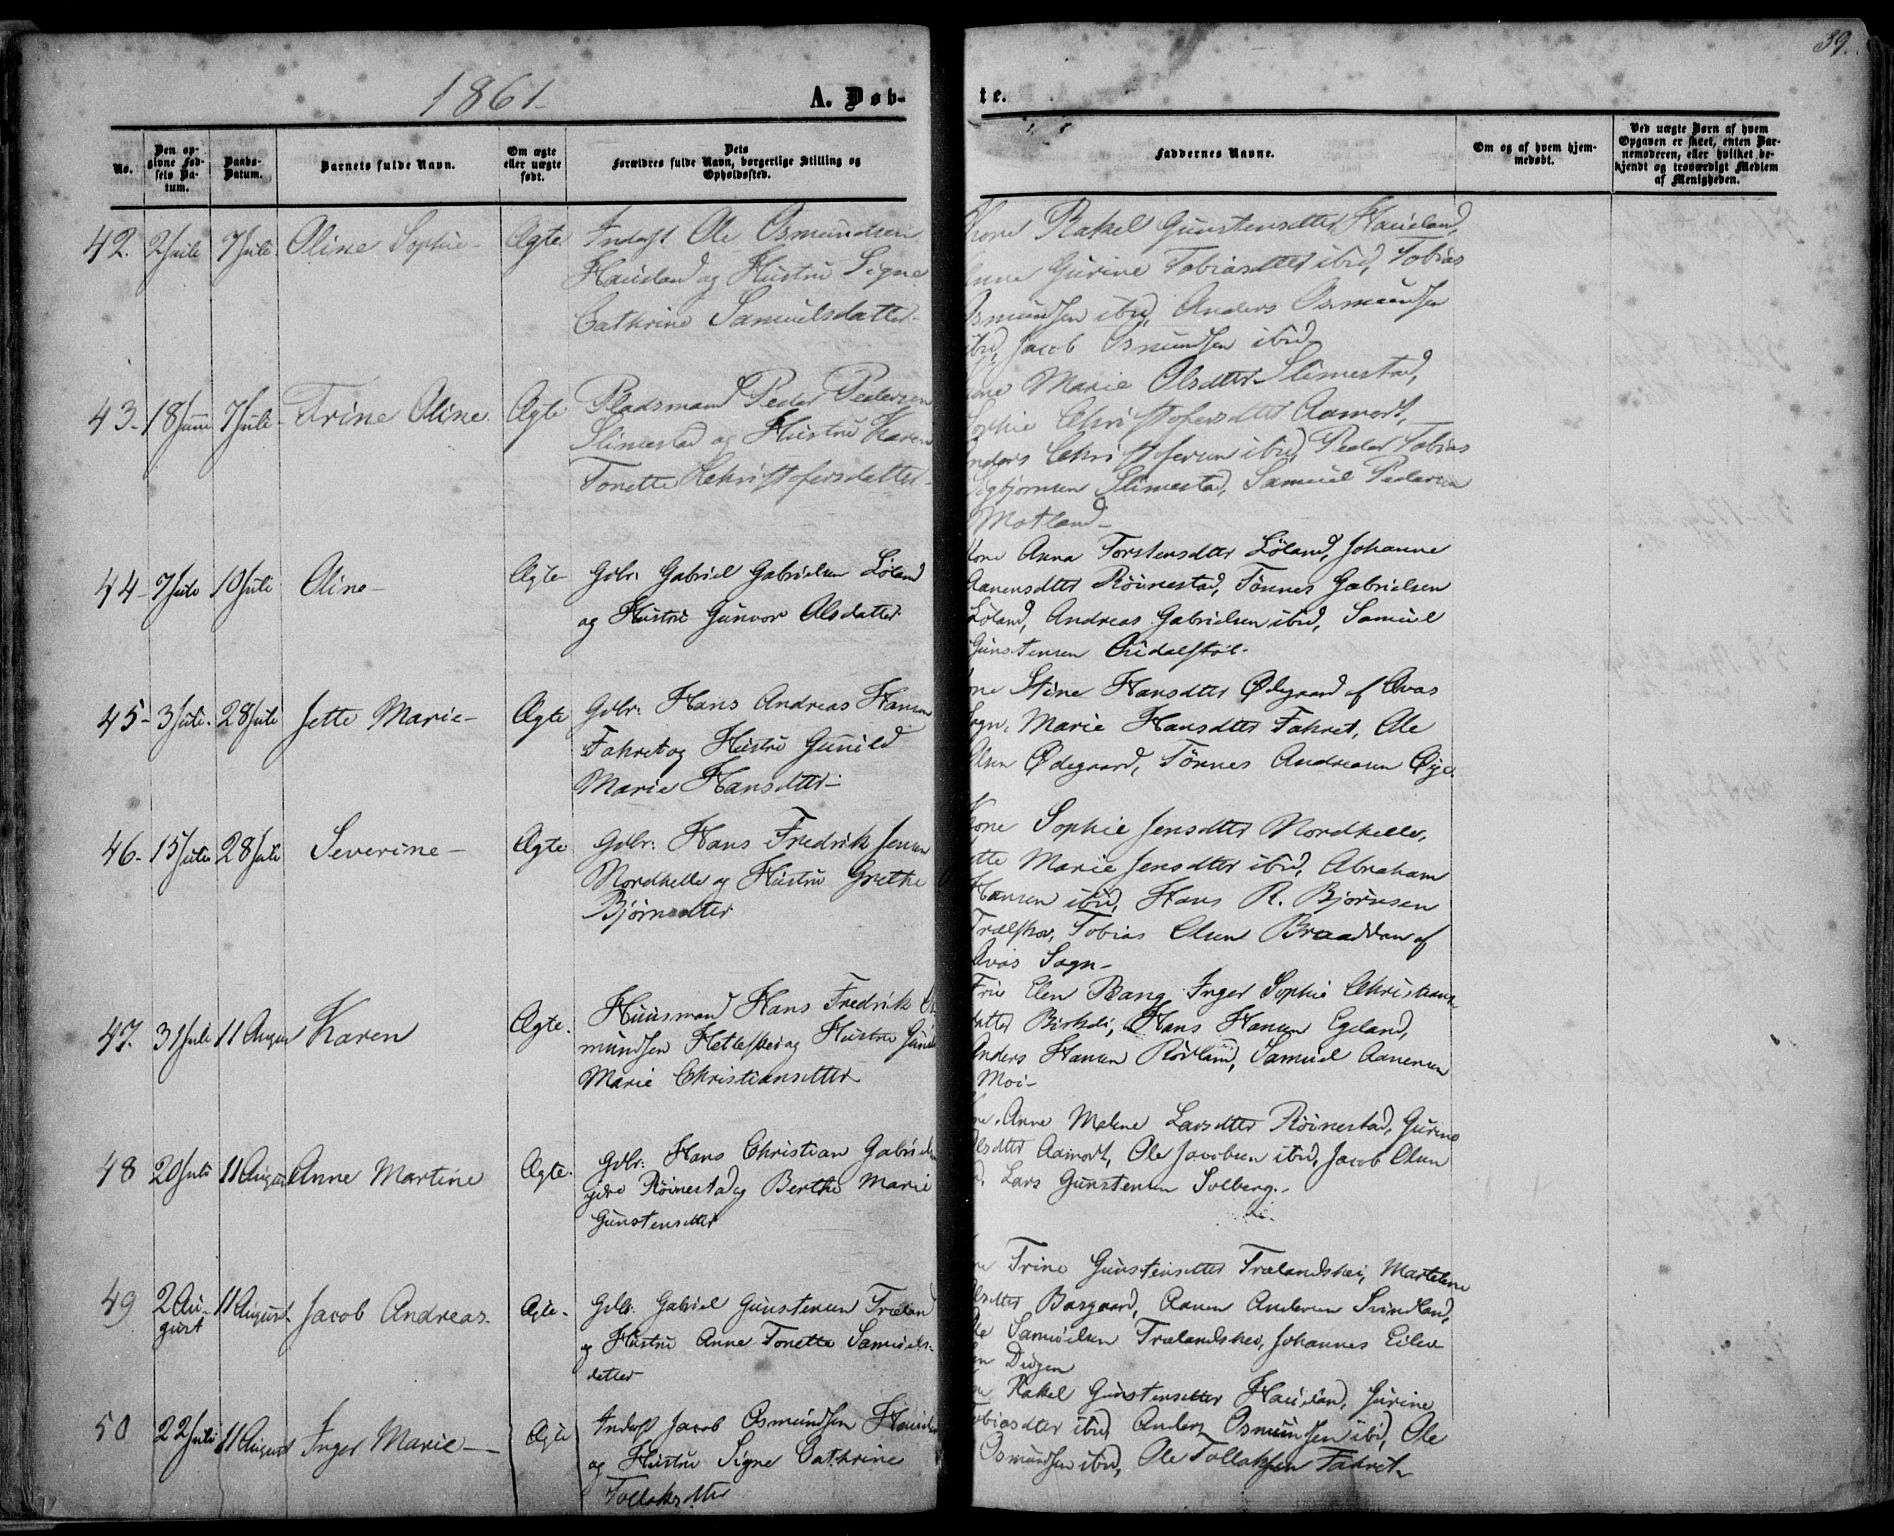 39.
1861.
A. Døb-
te.
No.
Den op-
givne Fød-
sels Da-
tum.
Daabs-
Datum.
Barnets fulde Navn.
Om ægte
eller uægte
født.
Dets
Forældres fulde Navn, borgerlige Stilling og
Opholdssted.
Faddernes Navne.
Om og af hvem hjem-
medøbt.
Ved uægte Børn af hvem
Opgaven er skeet, enten Bar-
nemoderen, eller hvilket be-
kjendt og troværdigt Medlem
af Menigheden.
42. 2 Juli 7 Juli Oline Sophie - Ægte Inderst Ole Osmundsen
Hauland og Hustru Signe
Cathrine Samuelsdatter.
Kone Rakel Gunstensdtter Hauland,
Gurine Tobiasdtter ibid, Tobias
Osmundsen ibid, Anders Osmundsen
ibid, Jacob Osmundsen ibid
43. 18 Juni 7 Juli Trine Oline. Ægte Pladsmand Peder Pedersen
Slimestad og Hustru Karen
Tonette Christofersdatter.
Kone Marie Olsdtter Slimestad,
Sophie Christofersdtter Aamodt,
Anders Christofersen ibid, Peder Tobias
Sigbjørnsen Slimestad, Samuel Pedersen
Motland -
44 - 7 Juli 10 Juli Oline - Ægte - Gdbr. Gabriel Gabrielsen Løland
og Hustru Gunvor Olsdatter.
Kone Anna Torstensdtter Løland, Johanne
Aanensdtter Røinestad, Tønnes Gabrielsen
Løland, Andreas Gabrielsen ibid, Samuel
Gunstensen
45 - 3 Juli. 28 Juli Jette Marie - Ægte Gdbr. Hans Andreas Hansen
Fakret og Hustru Gunild
Marie Hansdtter -
Kone Stine Hansdtter Ødegaard af Avas
Sogn, Marie Hansdtter Fakret, Ole
Olsen Ødegaard, Tønnes Andreasen Øye.
46 - 15 Juli 28 Juli Severine - Ægte Gdbr. Hans Fredrik Jensen
Nordhelle og Hustru Grethe
Bjørnsdtter
Kone Sophie Jensdtter Nordhelle,
Jette Marie Jensdtter ibid, Abraham
Hansen ibid, Hans R. Bjørnsen
Trælskov, Tobias Olsen Braadden af
Avas Sogn -
47. 31 Juli 11 August Karen Ægte. Huusmand Hans Fredrik Os-
mundsen Hetleskei og Hustru Gunild
Marie Christiansdtter
Fru Elen Bang, Inger Sophie Christians-
datter Birkeli, Hans Hansen Egeland,
Anders Hansen Rødland, Samuel Aanensen
Moi -
48 20 Juli 11 August Anne Martine Ægte. Gdbr. Hans Christian Gabriel
Røinestad og Berthe Marie
Gunstensdtter
Anne Malene Larsdtter Røinestad, Gurine
Olsdtter Aamodt, Ole Jacobsen ibid, Jacob Olsen
Lars Gunstensen Solberg. -
49 2 Au-
gust 11 August Jacob Andreas. Ægte. Gdbr. Gabriel Gunstensen Træland
og Hustru Anne Tonette Samuels-
datter
Trine Gunstensdtter Trælandshei, Martelene
Olsdtter Borgaard, Aanen Andersen Svindland,
Ole Samuelsen Trælandshei, Johannes Eilev
sen Dugen
50 22 Juli 11 August Inger Marie - Ægte Inderst Jacob Osmundsen Hauland
og Hustru Signe Cathrine
Tollaksdtter
Rakel Gunstensdtter Hauland, Gurine
Tobiasdtter ibid, Anders Osmundsen ibid, Ole
Osmundsen ibid, Ole Tollaksen Fakret -